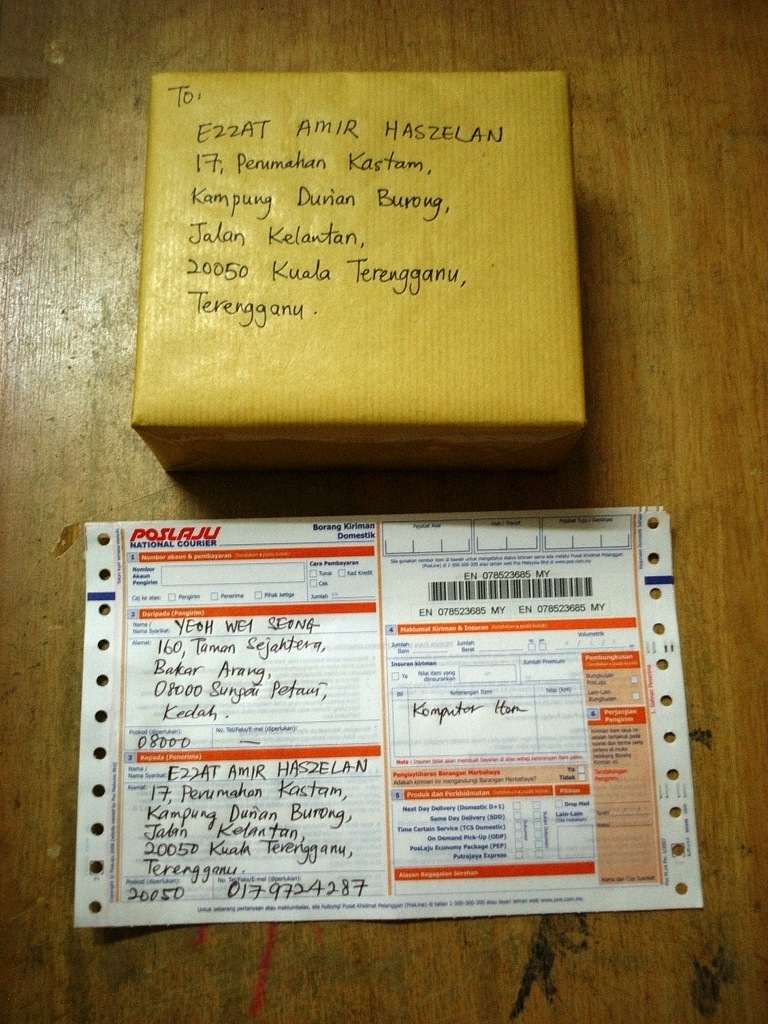 To:
EZZAT AMIR HASZELAN
17, Perumahan Kastam,
Kampung Durian Burong,
Jalan Kelantan,
20050 Kuala Terengganu,
Terengganu.
POSLAJU
NATIONAL COURIER
Borang Kiriman
Domestik
1 Nombor akaun & pembayaran
Nombor
Akaun
Pengirim
Cara Pembayaran
Tunai Kad Kredit
Cek
Caj ke atas: Pengirim Penerima Pihak ketiga
Jumlah
2 Daripada (Pengirim)
Nama /
Nama Syarikat: YEOH WEI SEONG
Alamat: 160, Taman Sejahtera,
Bakar Arang,
08000 Sungai Petani,
Kedah.
Poskod (diperlukan): No. Tel/Faks/E-mel (diperlukan):
08000 —
3 Kepada (Penerima)
Nama /
Nama Syarikat: EZZAT AMIR HASZELAN
Alamat: 17, Perumahan Kastam,
Kampung Durian Burong,
Jalan Kelantan,
20050 Kuala Terengganu,
Terengganu.
Poskod (diperlukan): No. Tel/Faks/E-mel (diperlukan):
20050 0179724287
Pejabat Asal Hub / Transit
EN 078523685 MY
EN 078523685 MY EN 078523685 MY
4 Maklumat Kiriman & Insuran
Jumlah
Item
Jumlah
Berat
Volumetrik
Insuran kiriman
Ya
Nilai item yang
diinsurankan
Jumlah Premium
Bil Keterangan Item Nilai (RM)
Komputer Item
Pembungkusan
Bungkusan
PosLaju
Lain-Lain
Bungkusan
6 Perjanjian
Pengirim
Tandatangan
Pengirim
Pengisytiharan Barangan Merbahaya
Adakah kiriman ini mengandungi Barangan Merbahaya?
Ya
Tidak
5 Produk dan Perkhidmatan
Pilihan
Next Day Delivery (Domestic D+1)
Same Day Delivery (SDD)
Time Certain Service (TCS Domestic)
On Demand Pick-Up (ODP)
PosLaju Economy Package (PEP)
Putrajaya Express
Drop Mail
Lain-Lain
Alasan Kegagalan Serahan